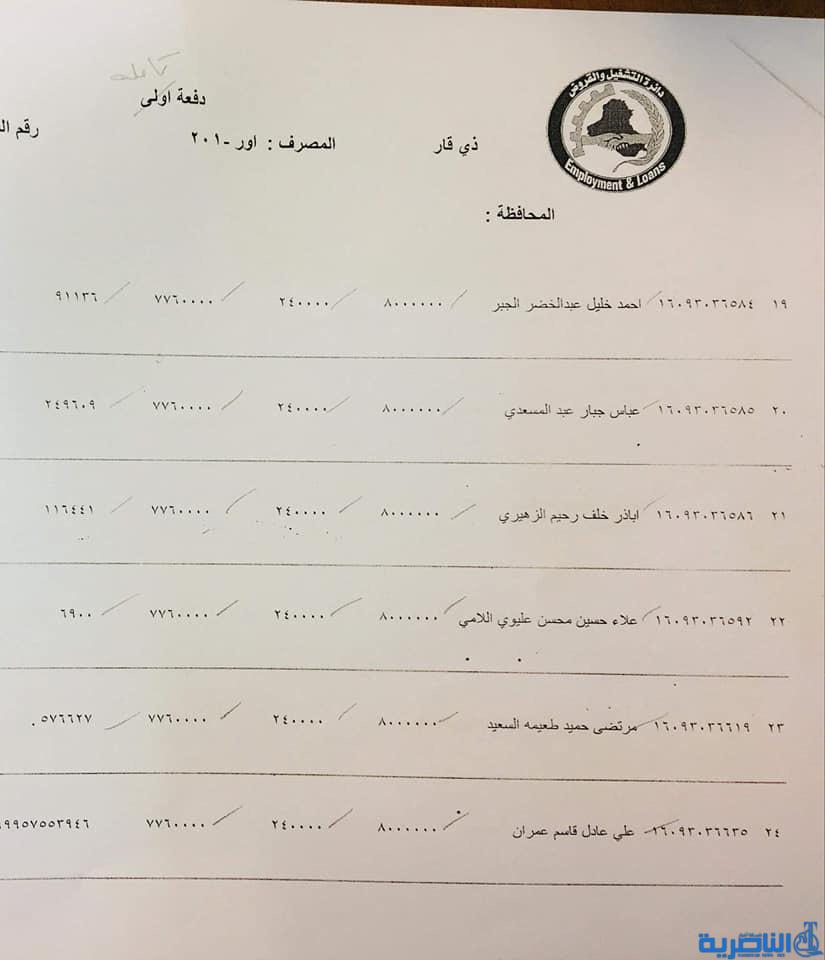 كامله
دائرة التشغيل والقروض
Employment & Loans
دفعة اولى
ذي قار المصرف : اور -٢٠١
المحافظة :
١٩ ١٦٠٩٣٠٣٦٥٨٤ احمد خليل عبدالخضر الجبر ٨٠٠٠٠٠٠ ٢٤٠٠٠٠ ٧٧٦٠٠٠٠ ٩١١٣٦
٢٠ ١٦٠٩٣٠٣٦٥٨٥ عباس جبار عبد المسعدي ٨٠٠٠٠٠٠ ٢٤٠٠٠٠ ٧٧٦٠٠٠٠ ٢٤٩٦٠٩
٢١ ١٦٠٩٣٠٣٦٥٨٦ اباذر خلف رحيم الزهيري ٨٠٠٠٠٠٠ ٢٤٠٠٠٠ ٧٧٦٠٠٠٠ ١١٦٤٤١
٢٢ ١٦٠٩٣٠٣٦٥٩٢ علاء حسين محسن عليوي اللامي ٨٠٠٠٠٠٠ ٢٤٠٠٠٠ ٧٧٦٠٠٠٠ ٦٩٠٠
٢٣ ١٦٠٩٣٠٣٦٦١٩ مرتضى حميد طعيمه السعيد ٨٠٠٠٠٠٠ ٢٤٠٠٠٠ ٧٧٦٠٠٠٠ ٥٧٦٦٢٧٠
٢٤ ١٦٠٩٣٠٣٦٦٣٥ علي عادل قاسم عمران ٨٠٠٠٠٠٠ ٢٤٠٠٠٠ ٧٧٦٠٠٠٠
رقم
الناصرية